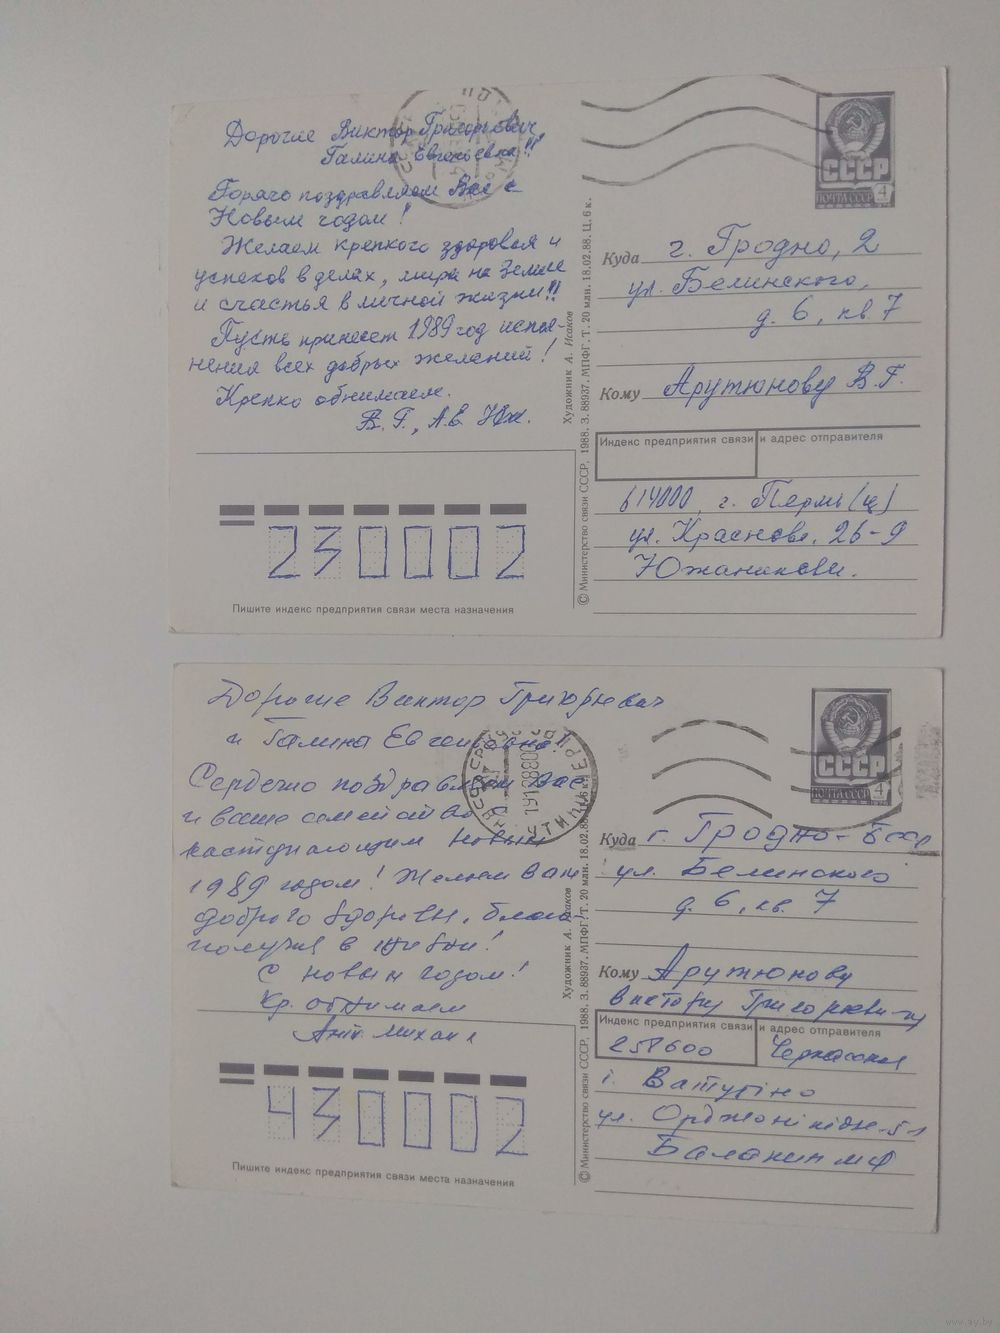 Дорогие Виктор Григорьевич,
Галина Евгеньевна!!
Горячо поздравляем Вас с
Новым годом!
Желаем крепкого здоровья и
успехов в делах, мира на Земле
и счастья в личной жизни!!
Пусть принесет 1989 год испол-
нения всех добрых желаний!
Крепко обнимаем.
В.Г., А.Е. Юж.
СССР
ПОЧТА СССР 4
Куда г. Гродно, 2
ул. Белинского,
д. 6, кв. 7
Кому Арутюнову В.Г.
Индекс предприятия связи и адрес отправителя
614000, г. Пермь (ц)
ул. Краснова, 26-9
Южаниковы.
230002
Пишите индекс предприятия связи места назначения
© Министерство связи СССР, 1988. З. 88937. МПФГ. Т. 20 млн. 18.02.88. Ц. 6 к.
Художник А. Исаков
Дорогие Виктор Григорьевич
и Галина Евгеньевна!
Сердечно поздравляем Вас
и ваше семейство с
наступающим Новым
1989 годом! Желаем Вам
доброго здоровья, благо-
получия в жизни!
С новым годом!
Кр. обнимаем
СССР
ПОЧТА СССР 4
Куда г. Гродно - Бсср
ул. Белинского
д. 6, кв. 7
Кому Арутюнову
Виктору Григорьевичу
Индекс предприятия связи и адрес отправителя
258600 Черкасская
г. Ватутіно
ул. Орджонікідзе
Баланин МФ
430002
Пишите индекс предприятия связи места назначения
© Министерство связи СССР, 1988. З. 88937. МПФГ. Т. 20 млн. 18.02.88. Ц. 6 к.
Художник А. Исаков
www.ay.by